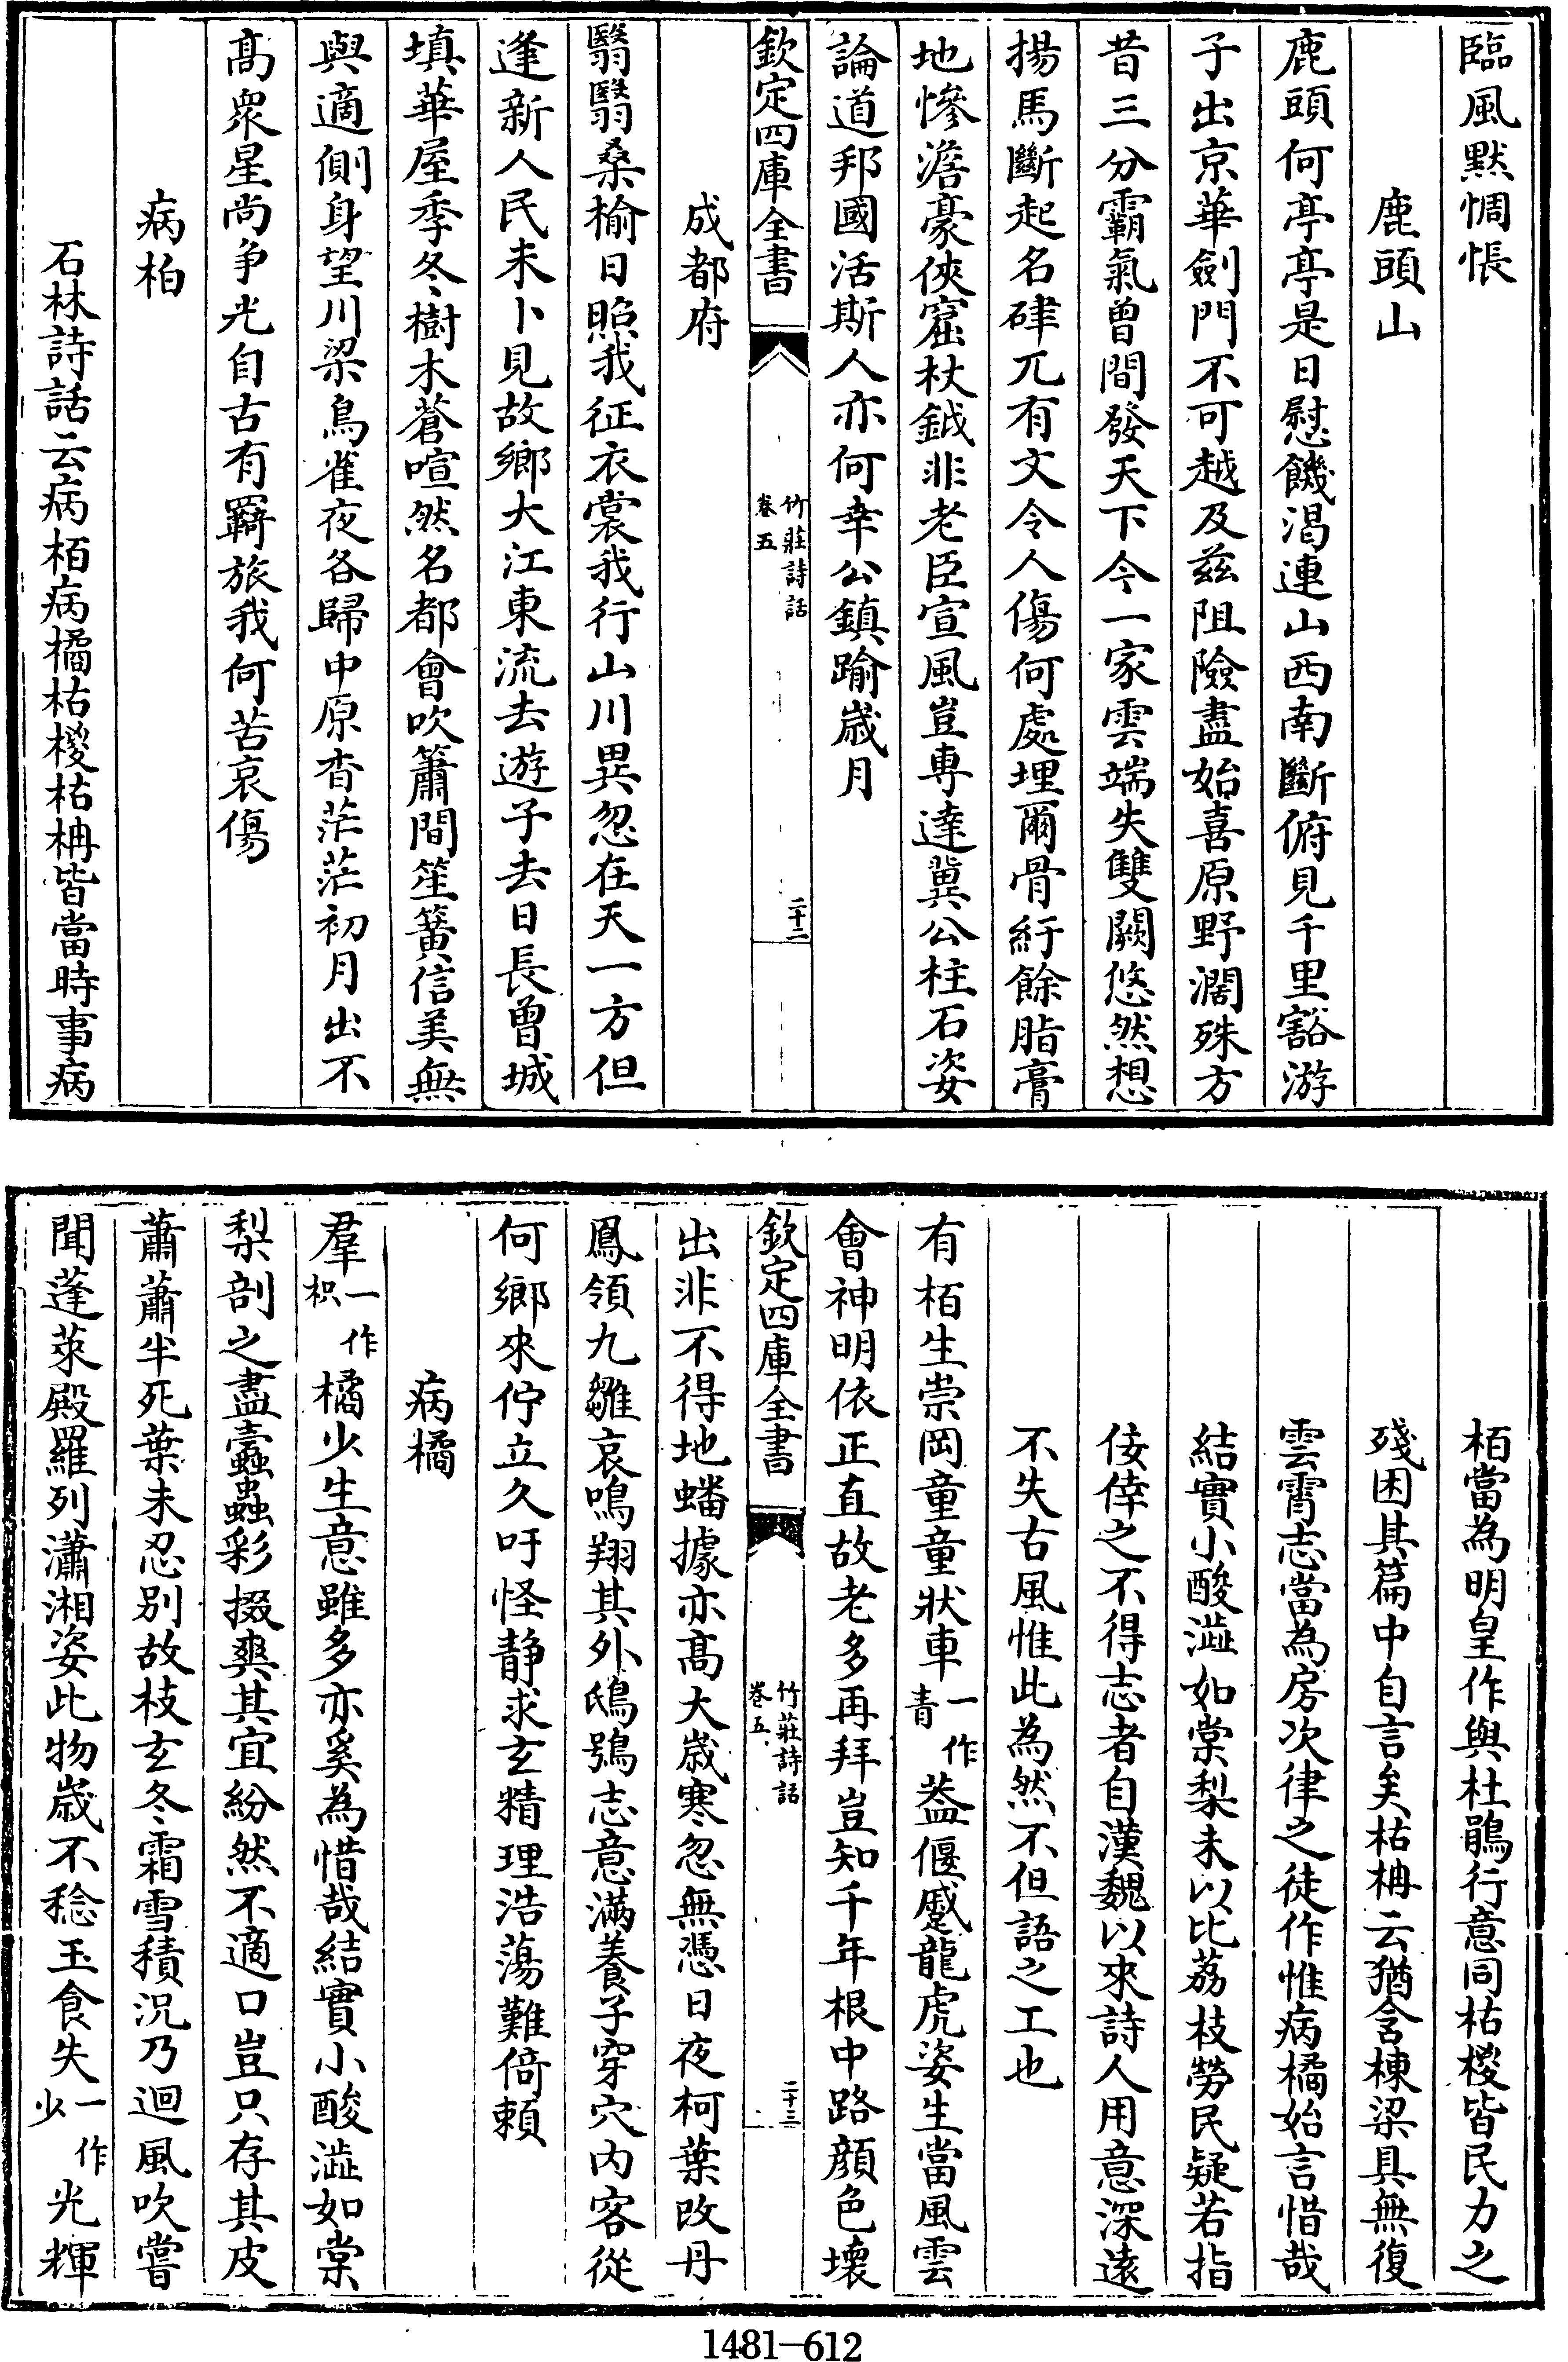 臨風黙惆悵
鹿頭山
鹿頭何亭亭是日慰饑渇連山西南斷俯見千里豁游
子出京華劍門不可越及兹阻險盡始喜原野濶殊方
昔三分霸氣曾間發天下今一家雲端失雙闕悠然想
揚馬斷起名硉兀有文令人傷何處埋爾骨紆餘脂膏
地慘澹豪俠窟杖鉞非老臣宣風豈専達冀公柱石姿
論道邦國活斯人亦何幸公鎮踰嵗月
欽定四庫全書
竹莊詩話
卷五
二十二
成都府
翳翳桑榆日照我征衣裳我行山川異忽在天一方但
逢新人民未卜見故鄉大江東流去遊子去日長曾城
填華屋季冬樹木蒼喧然名都會吹簫間笙簧信美無
與適側身望川梁鳥雀夜各歸中原杳茫茫初月出不
髙衆星尚爭光自古有羇旅我何苦哀傷
病柏
石林詩話云病栢病橘枯椶枯柟皆當時事病
栢當為明皇作與杜鵑行意同枯椶皆民力之
殘困其篇中自言矣枯柟云猶含棟梁具無復
雲霄志當為房次律之徒作惟病橘始言惜哉
結實小酸澁如棠梨未以比荔枝勞民疑若指
佞倖之不得志者自漢魏以來詩人用意深逺
不失古風惟此為然不但語之工也
有栢生崇岡童童狀車一作青葢偃蹇龍虎姿生當風雲
會神明依正直故老多再拜豈知千年根中路顔色壞
欽定四庫全書
竹莊詩話
卷五
二十三
出非不得地蟠據亦髙大嵗寒忽無憑日夜柯葉改丹
鳳領九雛哀鳴翔其外鴟鴞志意滿養子穿穴内客從
何鄉來佇立久吁怪静求𤣥精理浩蕩難倚頼
病橘
羣一作枳橘少生意雖多亦奚為惜哉結實小酸澁如棠
梨剖之盡蠧蟲彩掇爽其宜紛然不適口豈只存其皮
蕭蕭半死葉未忍别故枝𤣥冬霜雪積況乃迴風吹嘗
聞蓬萊殿羅列瀟湘姿此物嵗不稔玉食失一作少光輝
1481-612